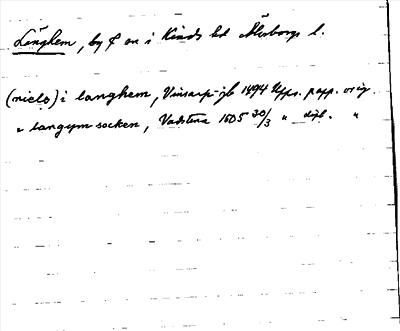 Långhem, by & sn i Kinds hd Älvsborgs l.
(niels) i langhem, Vinsarp-jb 1494 Upps. papp. orig.
" langym socken, Vadstena 1505 30/3 " dipl. "